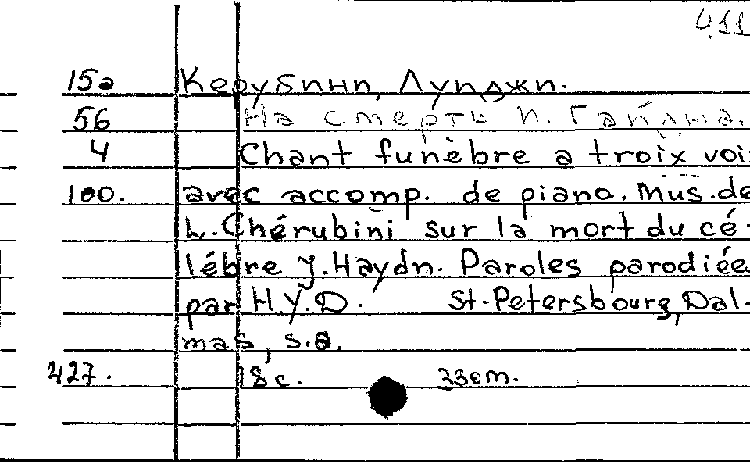 411
15а Керубини, Луиджи.
56 На смерть И. Гайдна.
4 Chant funèbre a troix voi
100. avec accomp. de piano. Mus. de
L. Chérubini sur la mort du cé-
lébre J. Haydn. Paroles parodiée
par H.Y.D. St-Petersbourg, Dal-
mas, s.a.
427. 18 c. 33 cm.